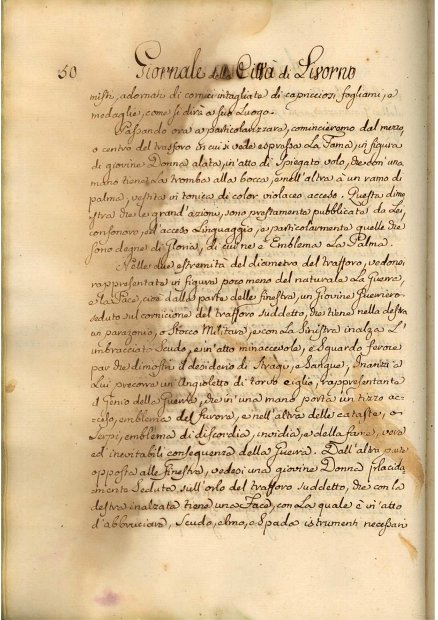 50 Giornale della Città di Livorno
misti, adornati di cornici intagliate di capricciosi fogliami, e
medaglie, come si dirà a suo luogo.
Passando ora a particolarizzare, comincieremo dal mezzo,
o centro del trafforo in cui si vede espressa La Fama, in figura
di giovine Donna alata, in atto di spiegato volo, che con una
mano tiene La tromba alla bocca, e nell'altra à un ramo di
palma, vestita in tonica di color violaceo acceso. Questa dimo
stra che le grand'azione, sono prestamente pubblicate da Lei,
con sonoro, ed acceso Linguaggio, e particolarmente quelle che
sono degne di Gloria, di cui ne è Emblema La Palma.
Nelle due estremità del diametro del trafforo, vedonsi
rappresentate in figura poco meno del naturale La Guerra,
e la Pace, cioè dalla parte delle finestra, un Giovine Guerriero
seduto sul cornicione del trafforo suddetto, che tiene nella destra
un parazonio, o Stocco Militare, e con La Sinistra inalza L'
imbracciato Scudo, e in atto minaccevole, e Sguardo feroce
par che dimostri il desiderio di Strage, e Sangue, Inanzi a
Lui precorre un Angioletto di torvo ciglio, rappresentante
il Genio della Guerra, che in una mano porta un tizzo ac
ceso, emblema del furore, e nell'altra delle ceraste, o
Serpi, emblema di discordia, invidia, e della fame, vere
ed inevitabili conseguenze della Guerra. Dall'altra parte
opposta alle finestre, vedesi una giovine Donna placida
mente Seduta sull'orlo del trafforo suddetto, che con la
destra inalzata tiene una Face, con La quale è in atto
d'abbruciare, Scudo, elmo, e Spada istrumenti necessari